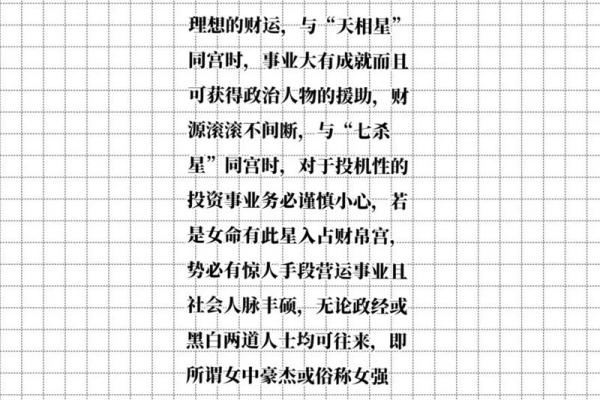 理想的财运，与“天相星”
同宫时，事业大有成就而且
可获得政治人物的援助，财
源滚滚不间断，与“七杀
星”同宫时，对于投机性的
投资事业务必谨慎小心，若
是女命有此星入占财帛宫，
势必有惊人手段营运事业且
社会人脉丰硕，无论政经或
黑白两道人士均可往来，即
所谓女中豪杰或俗称女强